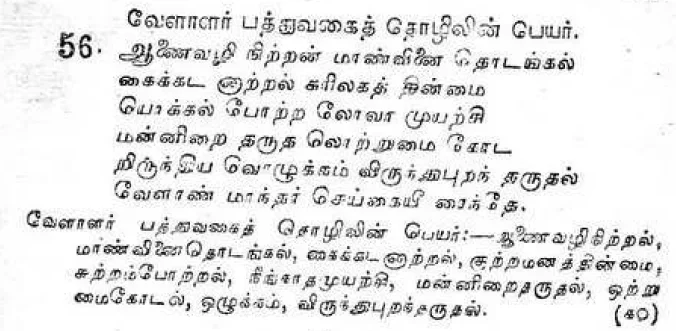 வேளாளர் பத்துவகைத் தொழிலின் பெயர்.
56. ஆணைவழி நிற்றன் மாண்வினை தொடங்கல்
கைக்கட னாற்றல் கரிலகத் தின்மை
யொக்கல் போற்ற லோவா முயற்சி
மன்னிறை தருத லொற்றுமை கோட
றிருந்திய வொழுக்கம் விருந்துபுறந் தருதல்
வேளாண் மாந்தர் செய்கையீ ரைந்தே.
வேளாளர் பத்துவகைத் தொழிலின் பெயர்:—ஆணைவழிநிற்றல்,
மாண்வினைதொடங்கல், கைக்கடனாற்றல், குற்றமனத்தின்மை,
சுற்றம்போற்றல், நீங்காதமுயற்சி, மன்னிறைதருதல், ஒற்று
மைகோடல், ஒழுக்கம், விருந்துபுறந்தருதல். (௧௦)